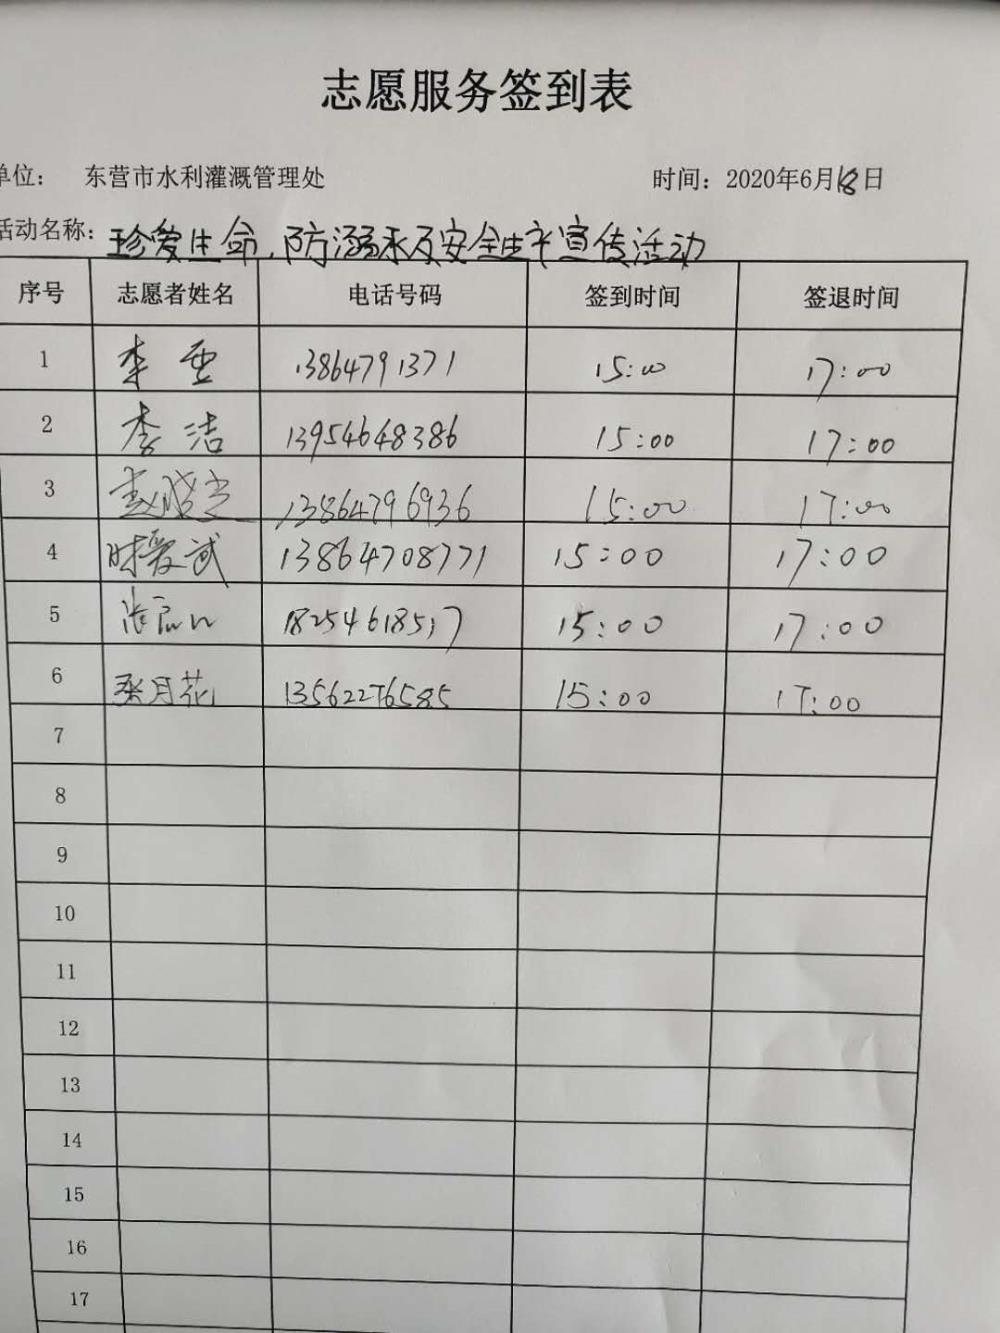 志愿服务签到表
单位： 东营市水利灌溉管理处 时间：2020年6月18日
活动名称：珍爱生命，防溺水及安全生产宣传活动
序号 志愿者姓名 电话号码 签到时间 签退时间
1 李亚 13864791371 15:00 17:00
2 李洁 13954648386 15:00 17:00
3 13864796936 15:00 17:00
4 爱武 13864708771 15:00 17:00
5 15:00 17:00
6 月花 13562276585 15:00 17:00
7
8
9
10
11
12
13
14
15
16
17